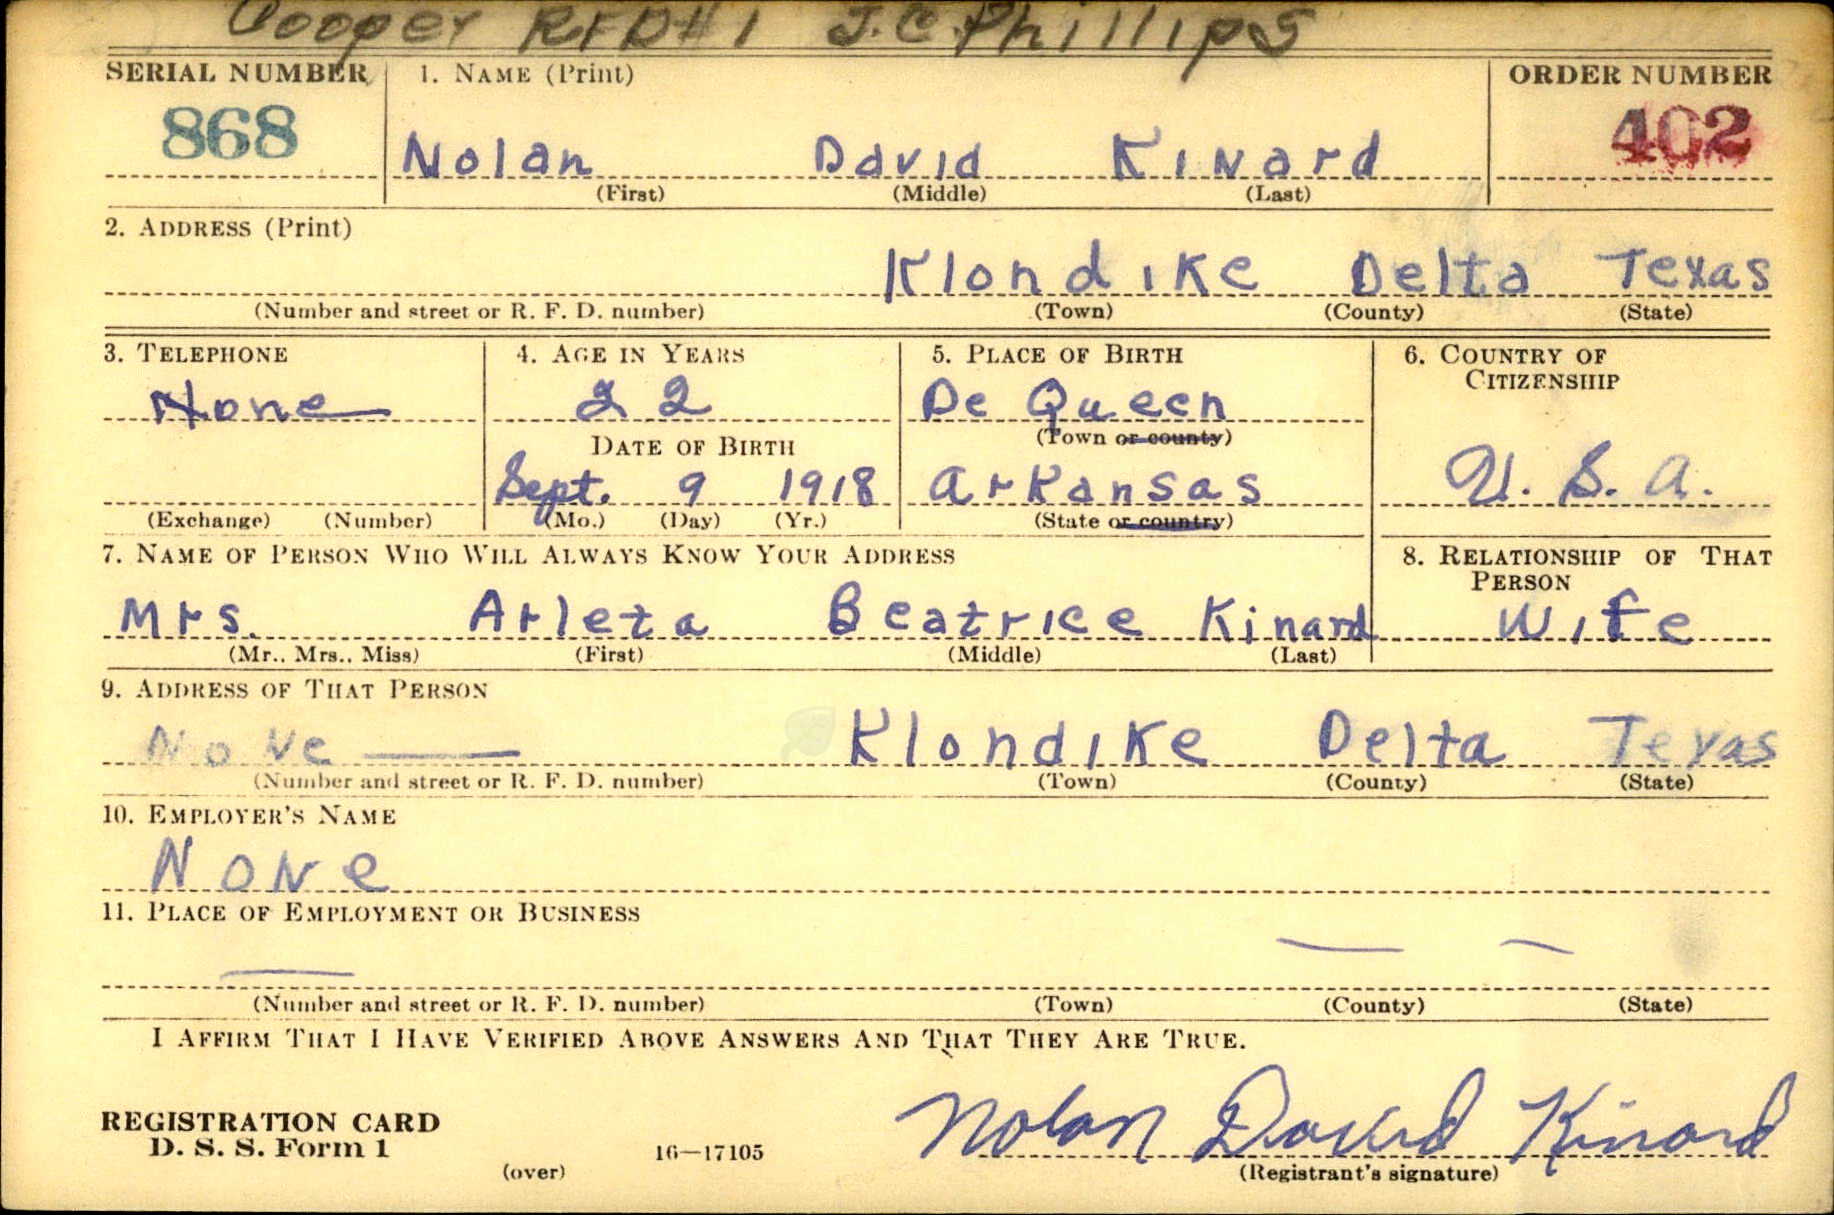 Cooper RFD#1 J.C. Phillips
SERIAL NUMBER 1. NAME (Print) ORDER NUMBER
868 Nolan David Kinard 402
(First) (Middle) (Last)
2. ADDRESS (Print)
Klondike Delta Texas
(Number and street or R. F. D. number) (Town) (County) (State)
3. TELEPHONE 4. AGE IN YEARS 5. PLACE OF BIRTH 6. COUNTRY OF
CITIZENSHIP
None 22 De Queen
DATE OF BIRTH (Town or county)
Sept. 9 1918 Arkansas U. S. A.
(Exchange) (Number) (Mo.) (Day) (Yr.) (State or country)
7. NAME OF PERSON WHO WILL ALWAYS KNOW YOUR ADDRESS 8. RELATIONSHIP OF THAT
PERSON
Mrs. Arleta Beatrice Kinard Wife
(Mr., Mrs., Miss) (First) (Middle) (Last)
9. ADDRESS OF THAT PERSON
None Klondike Delta Texas
(Number and street or R. F. D. number) (Town) (County) (State)
10. EMPLOYER'S NAME
None
11. PLACE OF EMPLOYMENT OR BUSINESS
(Number and street or R. F. D. number) (Town) (County) (State)
I AFFIRM THAT I HAVE VERIFIED ABOVE ANSWERS AND THAT THEY ARE TRUE.
REGISTRATION CARD
D. S. S. Form 1 16—17105 Nolan David Kinard
(over) (Registrant's signature)